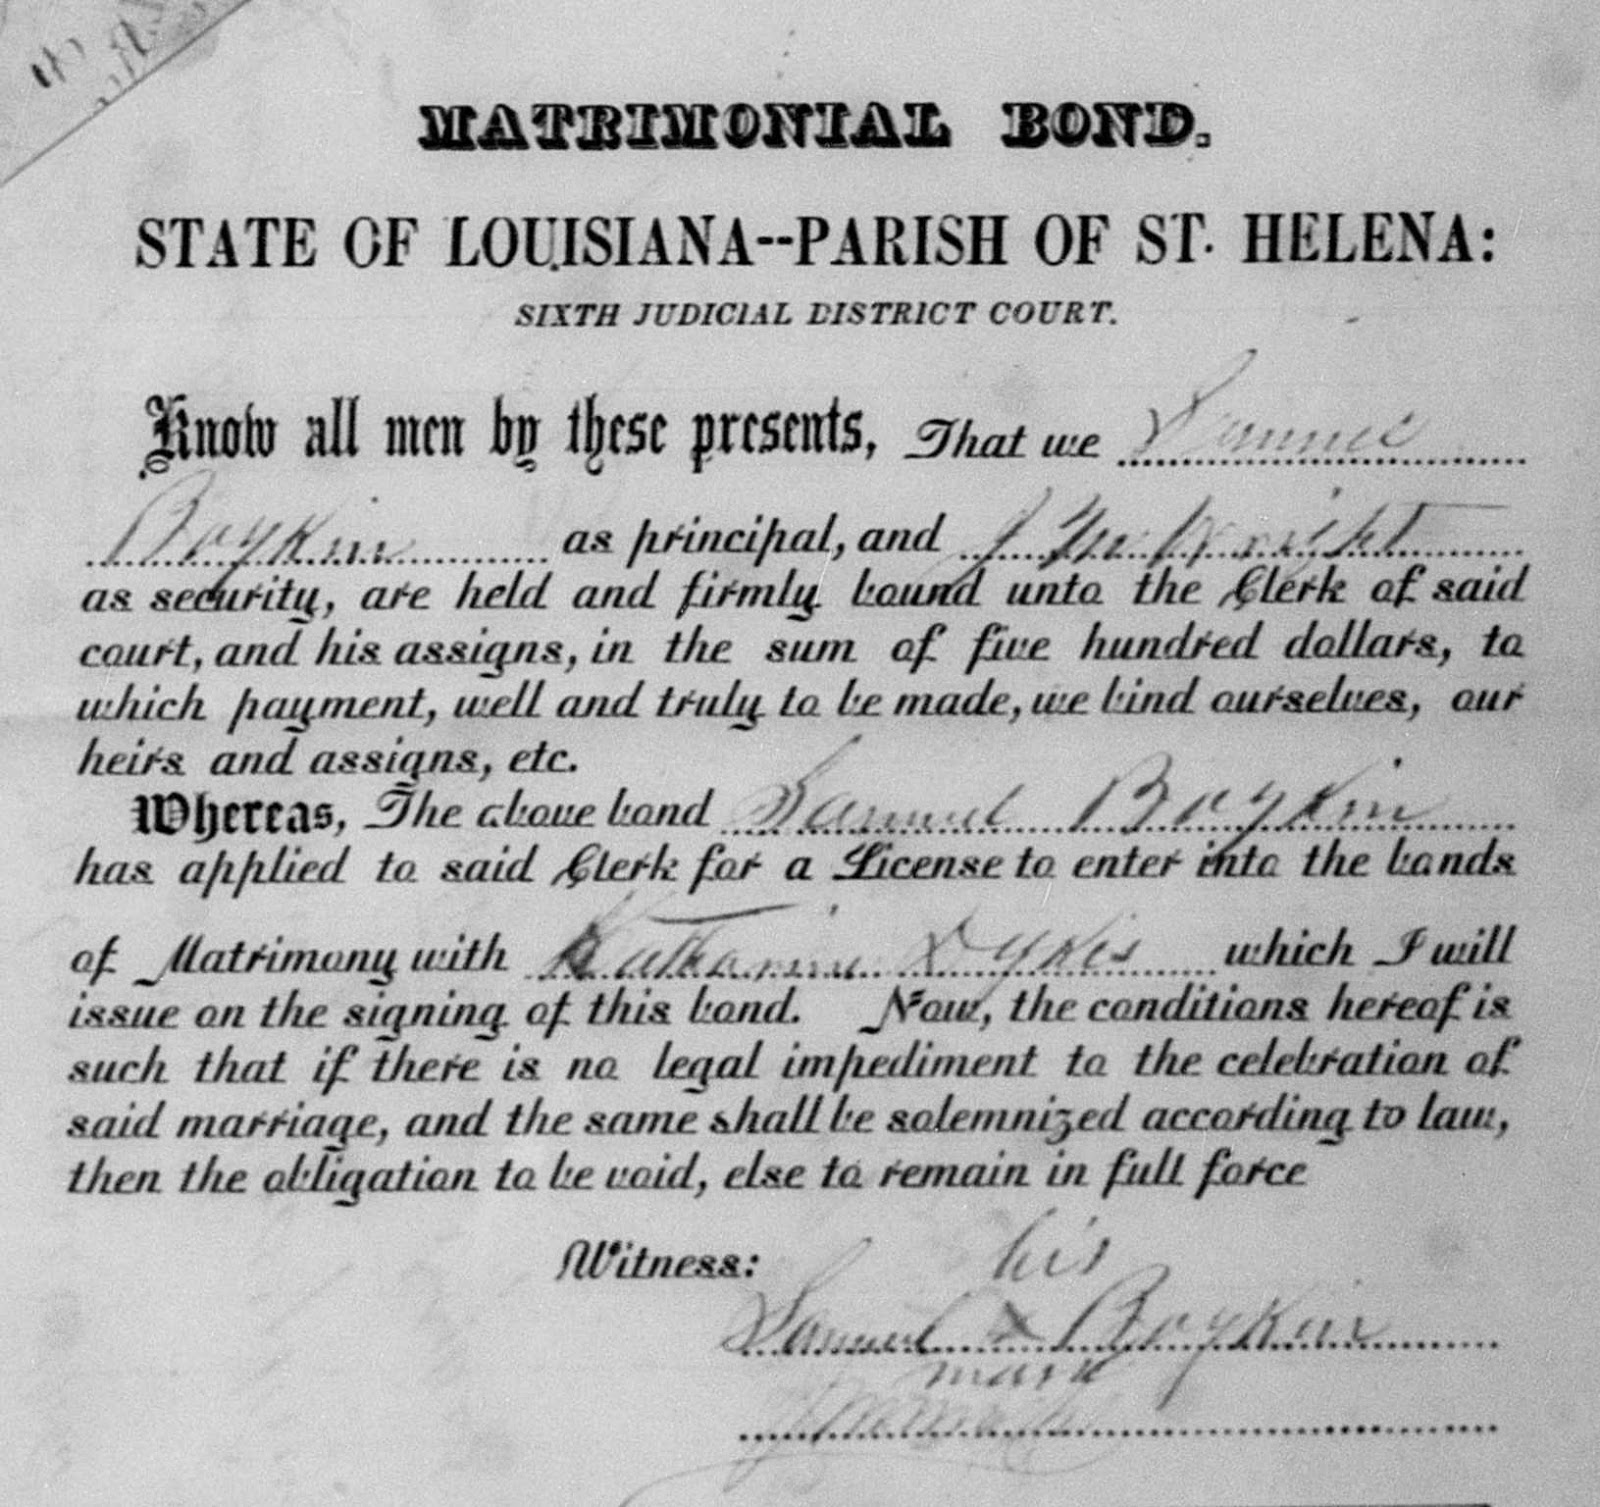 MATRIMONIAL BOND.
STATE OF LOUISIANA--PARISH OF ST. HELENA:
SIXTH JUDICIAL DISTRICT COURT.
Know all men by these presents, That we Samuel
Boykin as principal, and Wright
as security, are held and firmly bound unto the Clerk of said
court, and his assigns, in the sum of five hundred dollars, to
which payment, well and truly to be made, we bind ourselves, our
heirs and assigns, etc.
Whereas, The above bond Samuel Boykin
has applied to said Clerk for a License to enter into the bands
of Matrimony with Katharine Dykes which I will
issue on the signing of this bond. Now, the conditions hereof is
such that if there is no legal impediment to the celebration of
said marriage, and the same shall be solemnized according to law,
then the obligation to be void, else to remain in full force
Witness: his
Samuel X Boykin
mark